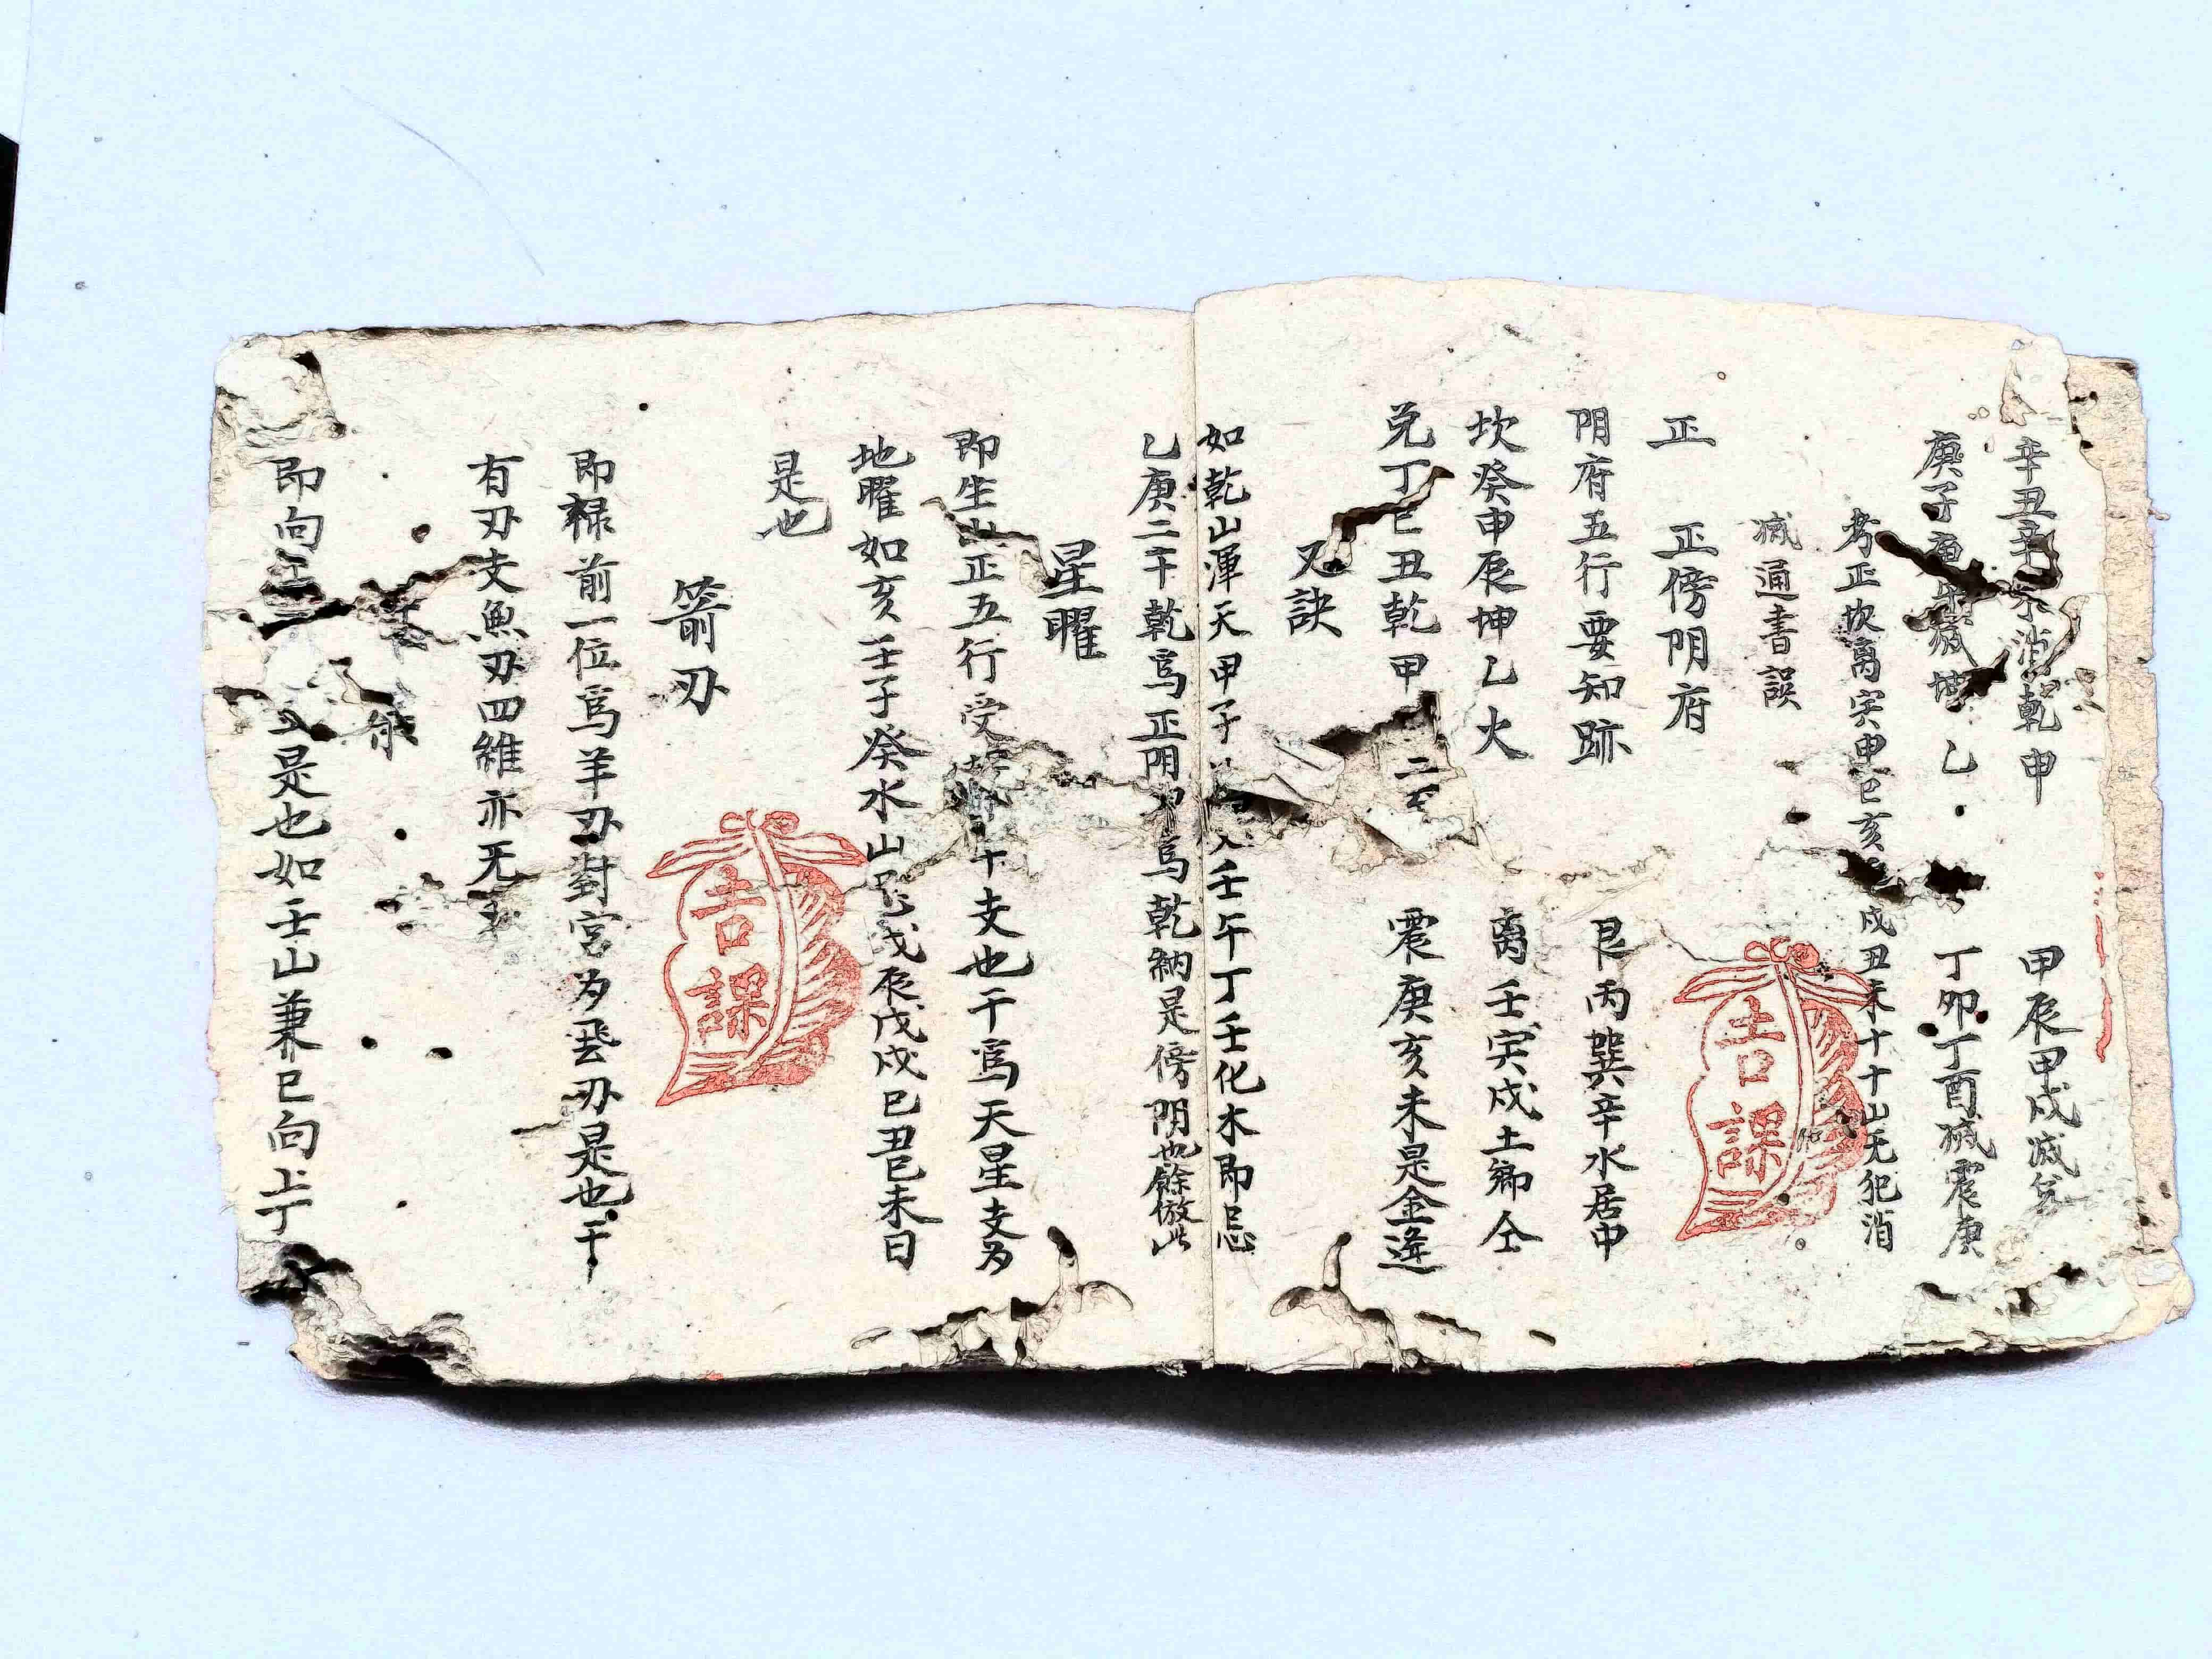 辛丑辛 消乾甲 甲辰甲戌滅兌
庚子庚 乙 丁卯丁酉滅震庚
考正坎离寅申巳亥 戌丑未十十山无犯消
滅通書誤
正 正傍阴府
阴府五行要知跡 艮丙巽辛水居中
坎癸申辰坤乙火 离壬寅戌土鄉仝
兌丁巳丑乾甲二 震庚亥未是金逢
又訣
如乾山渾天甲子 壬午丁壬化木即忌
乙庚二干乾為正阴 為乾納是傍阴也餘倣此
星曜
即生 正五行受 干支也干為天星支为
地曜如亥壬子癸水山忌戊辰戊戌己丑己未日
是也
箭刃
即祿前一位為羊刃對宮为飛刃是也干
有刃支無刃四維亦无
即向 是也如壬山兼巳向上丁
吉課
吉課